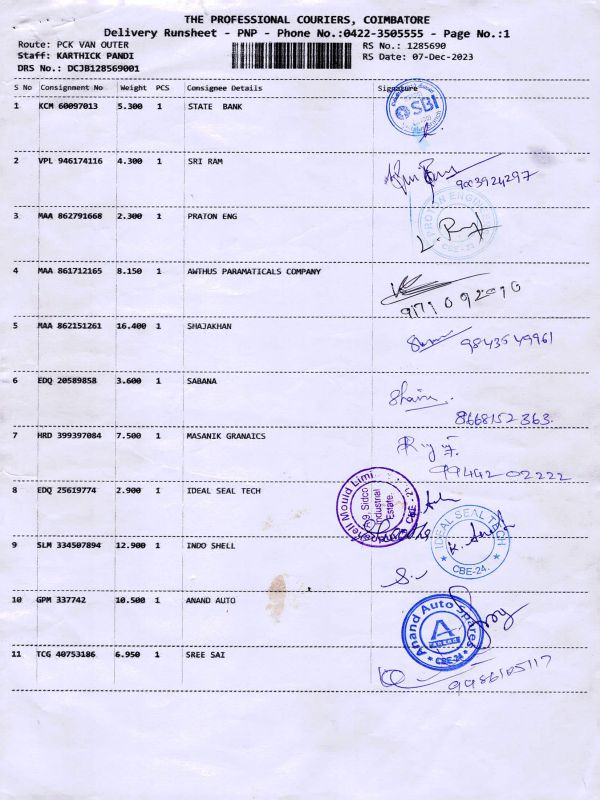 THE PROFESSIONAL COURIERS, COIMBATORE
Delivery Runsheet - PNP - Phone No.:0422-3505555 - Page No.:1
Route: PCK VAN OUTER
RS No.: 1285690
Staff: KARTHICK PANDI
RS Date: 07-Dec-2023
DRS No.: DCJB128569001
S No Consignment No Weight PCS Consignee Details Signature
1 KCM 60097013 5.300 1 STATE BANK
SBI
2 VPL 946174116 4.300 1 SRI RAM
9003924297
3 MAA 862791668 2.300 1 PRATON ENG
CBE-21
4 MAA 861712165 8.150 1 AWTHUS PARAMATICALS COMPANY
9171092090
5 MAA 862151261 16.400 1 SHAJAKHAN
9843549961
6 EDQ 20589858 3.600 1 SABANA
8668152363.
7 HRD 399397084 7.500 1 MASANIK GRANAICS
9944202222
8 EDQ 25619774 2.900 1 IDEAL SEAL TECH
Sidco Industrial Estate.
IDEAL SEAL TECH
CBE-24.
9 SLM 334507894 12.900 1 INDO SHELL
S.-
10 GPM 337742 10.500 1 ANAND AUTO
Anand Auto Spares
A
ANAND
CBE-24
11 TCG 40753186 6.950 1 SREE SAI
9486105117